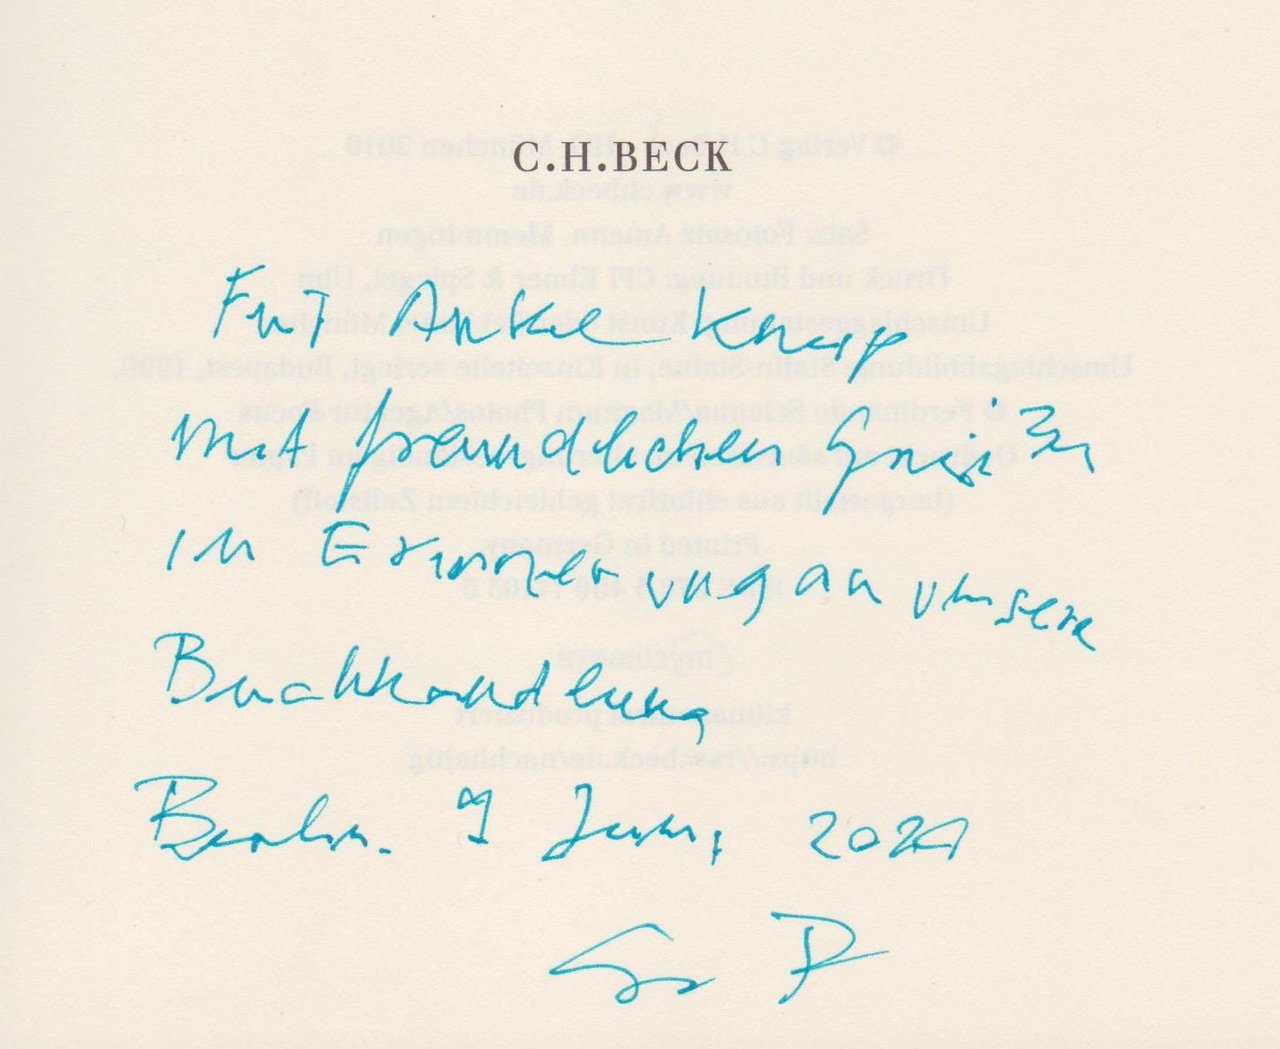 C.H.BECK
Für Anke
mit freundlichen Grüßen
in Erinnerung an unsere
Buchhandlung
Berlin. 9 Juni 2021